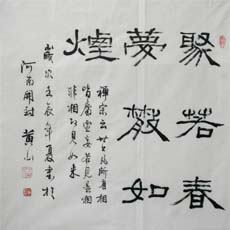 聚若春
夢散如
煙
禪宗云世上凡所有相
皆屬虛妄若見諸相
非相即見如來
歲次壬辰年夏末於
河南開封